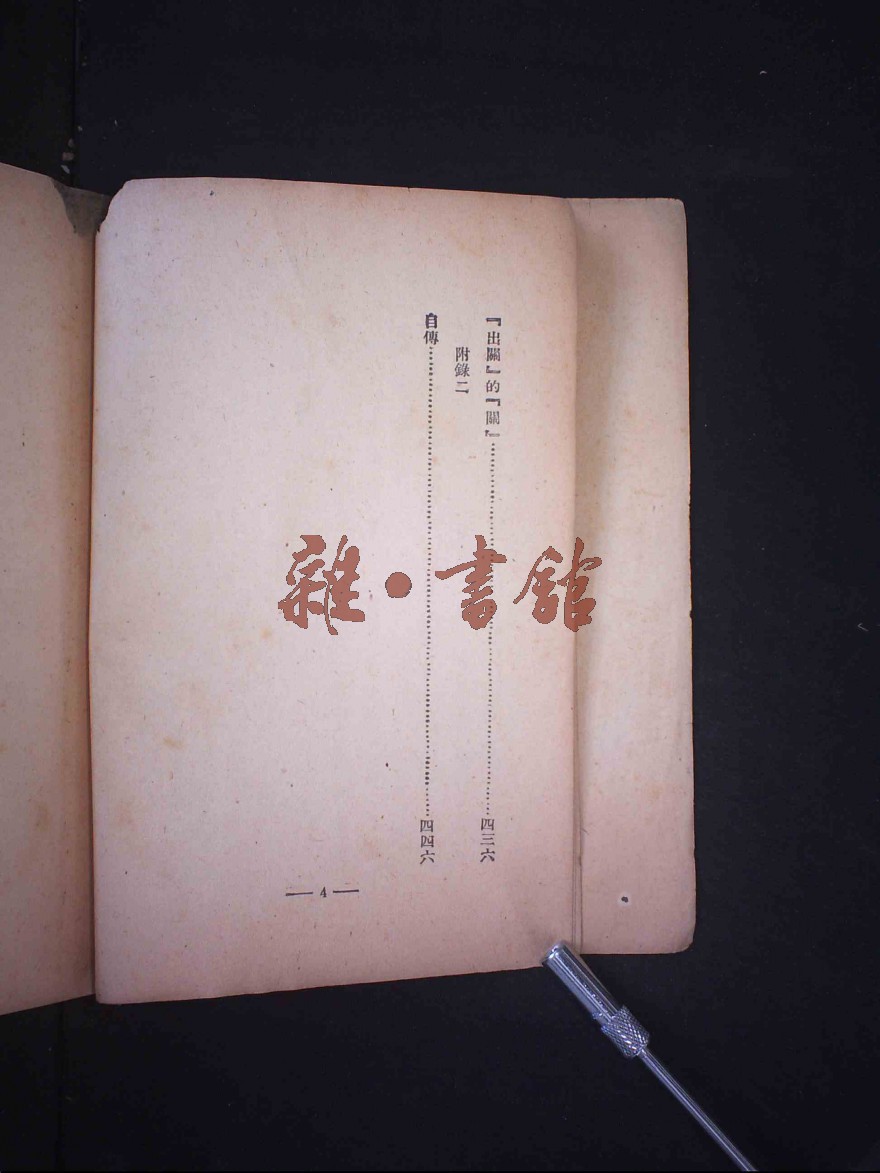 『出關』的『關』……………………四三六
附錄二
自傳……………………四四六
— 4 —
雜·書館